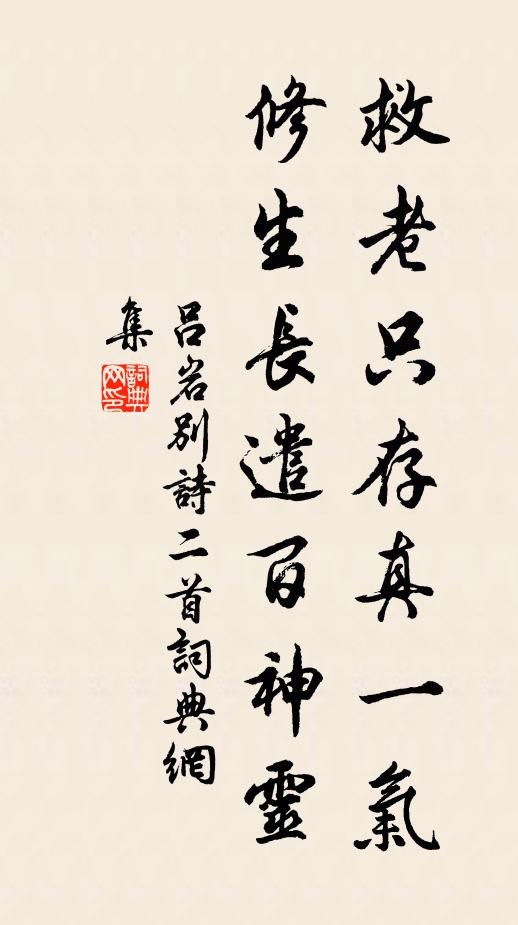 救老只存真一氣
修生長遣百神靈
呂岩別詩二首詞典網
集
詞典网印